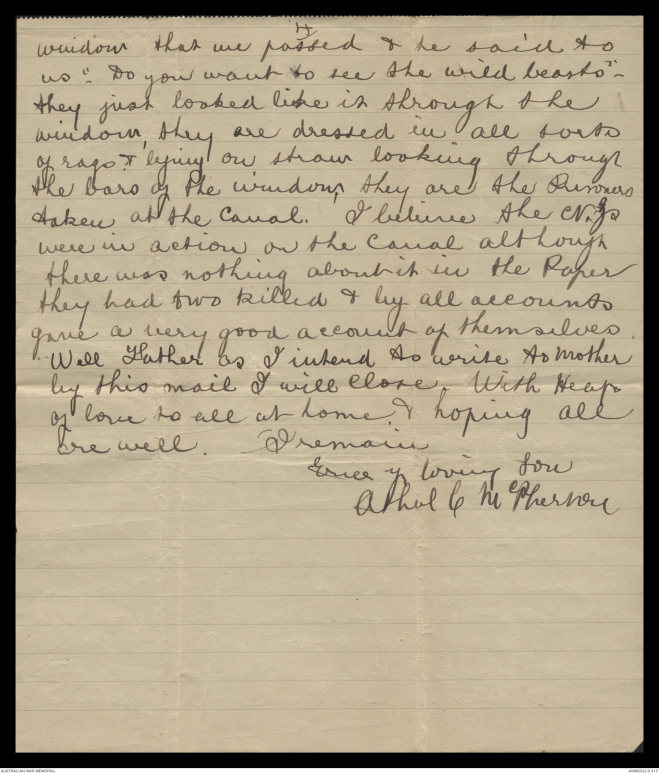 4
window that we passed & he said to
us "Do you want to see the wild beasts" -
they just looked like it through the
window, they are dressed in all sorts
of rags & lying on straw looking through
the bars of the window, they are the Prisoners
taken at the Canal. I believe the N.Zs
were in action on the Canal although
there was nothing about it in the Paper
they had two killed & by all accounts
gave a very good account of themselves.
Well Father as I intend to write to Mother
by this mail I will close. With Heaps
of love to all at home & hoping all
are well. I remain
Ever yr loving Son
Athol C McPherson
AUSTRALIAN WAR MEMORIAL